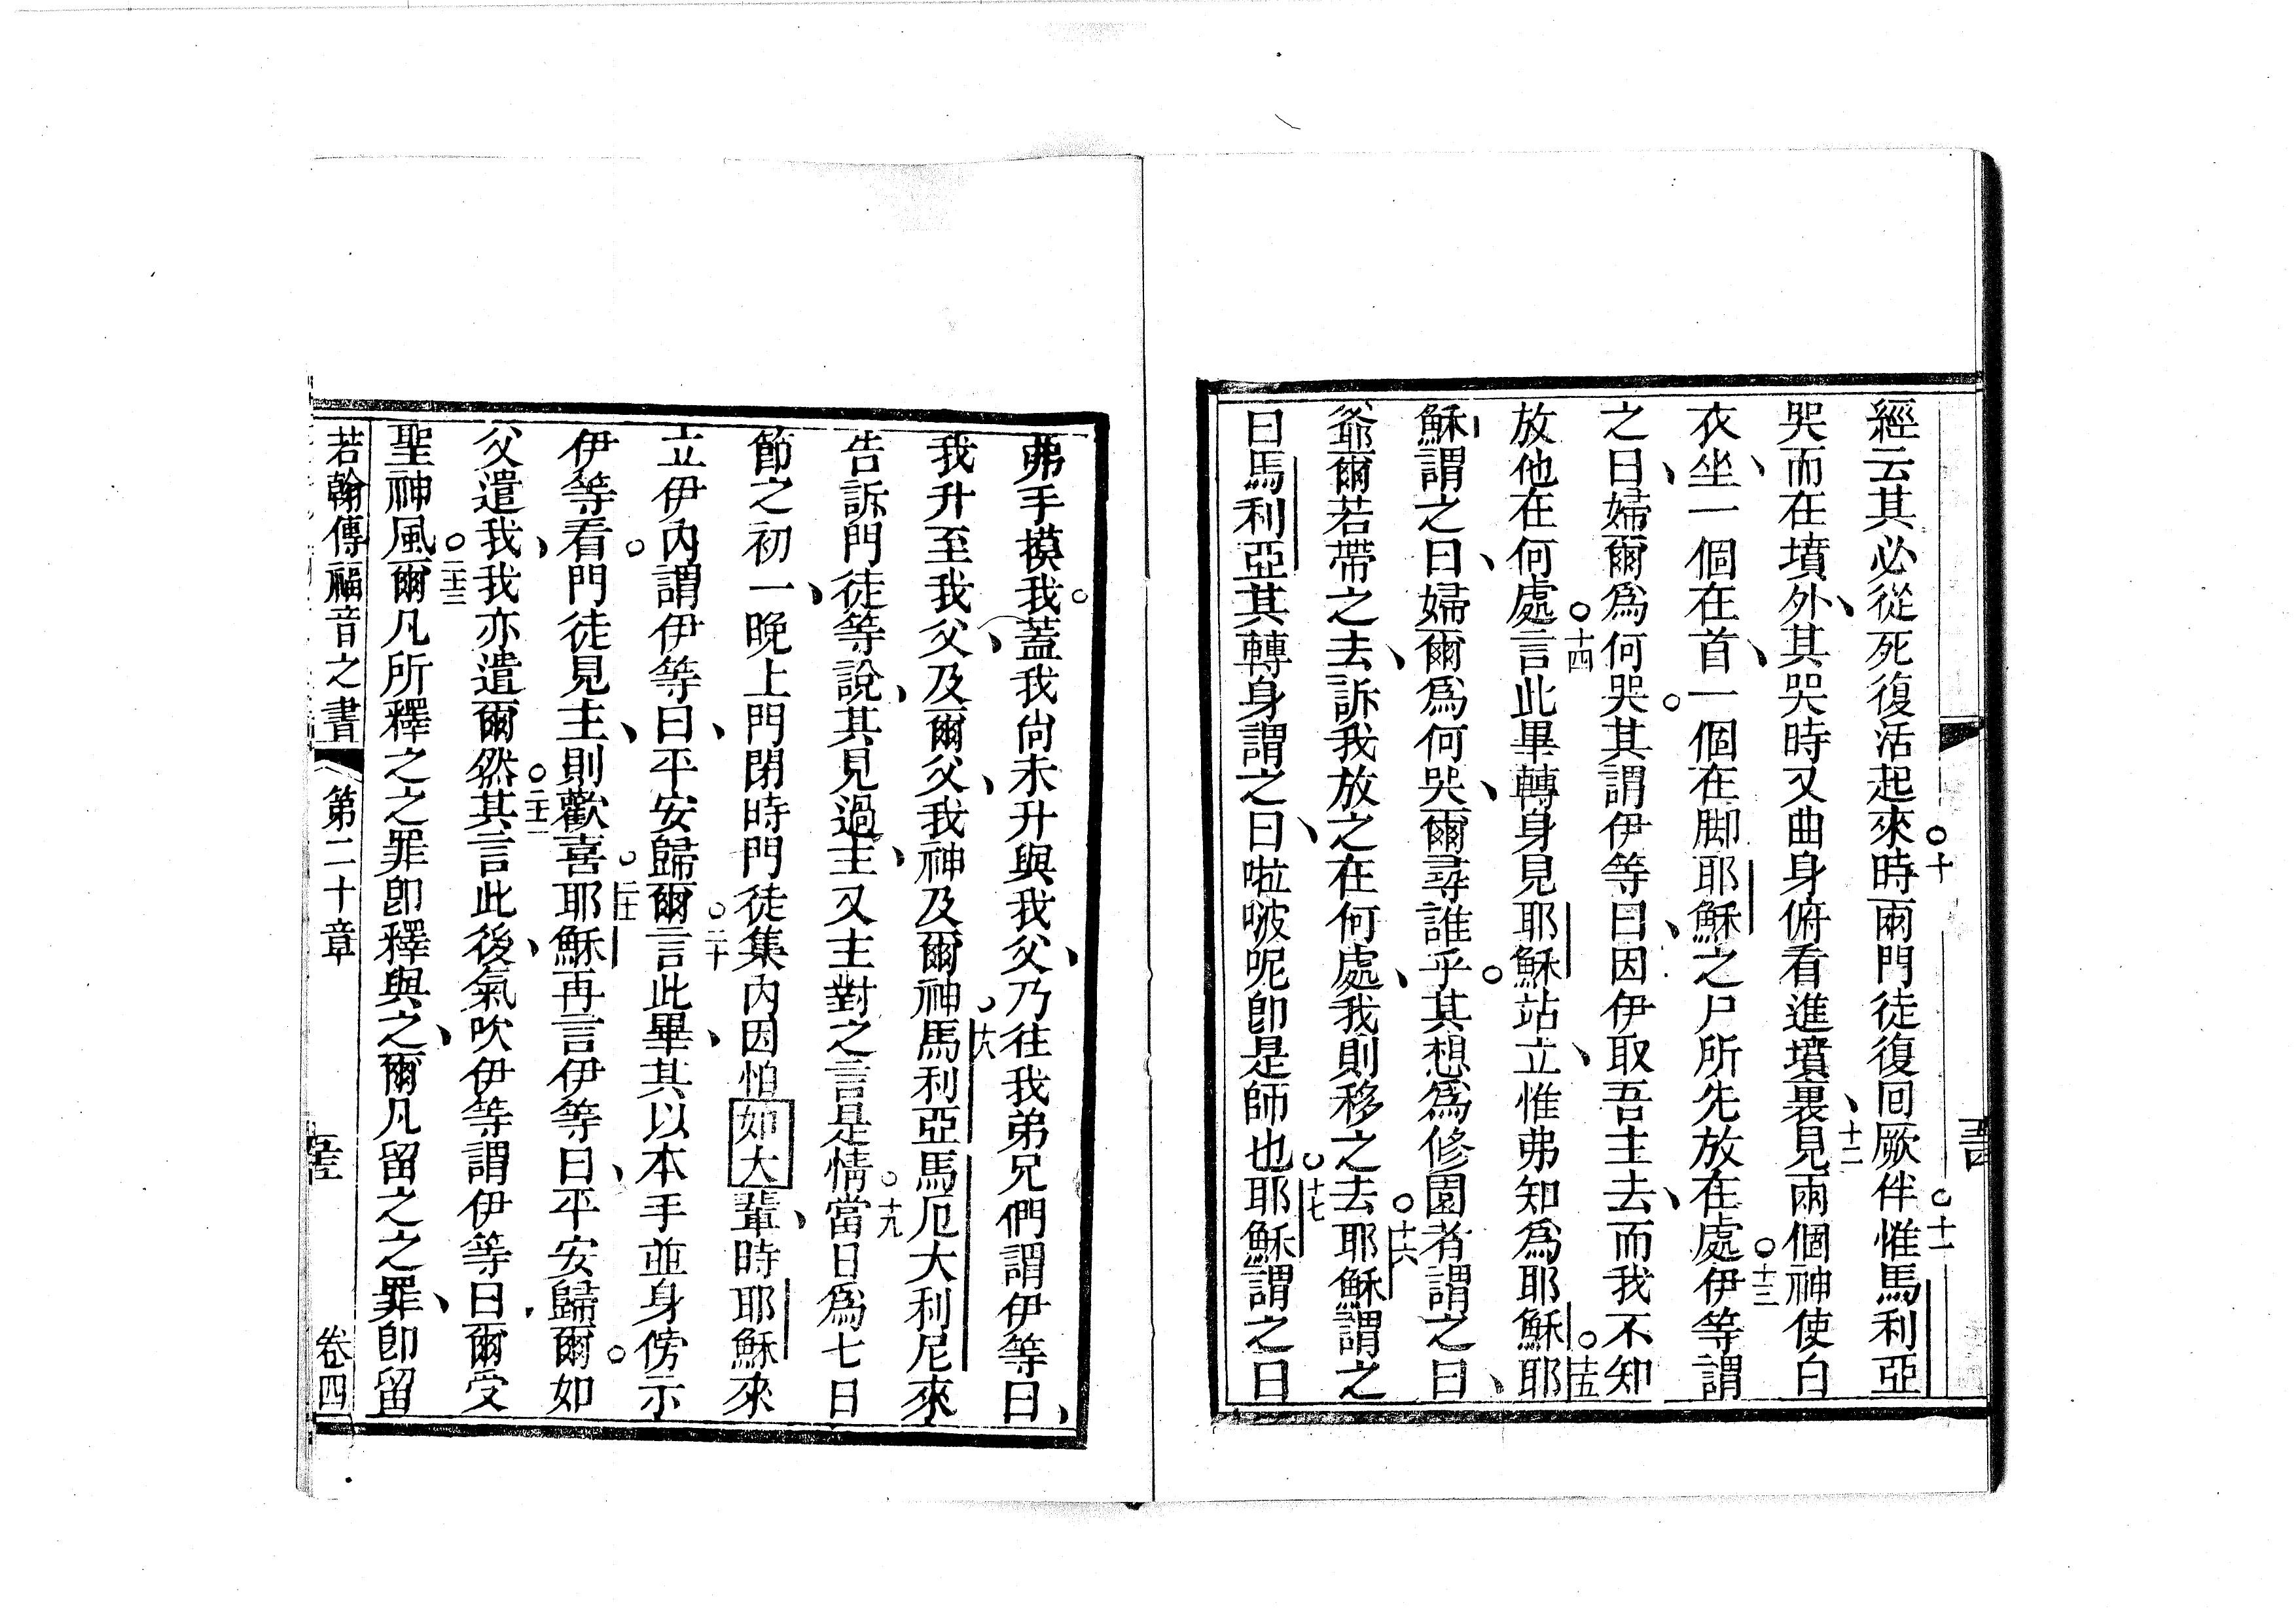 經云其必從死復活起來○十時兩門徒復回厥伴○十一惟馬利亞
哭而在墳外、其哭時又曲身俯看進墳裏、十二見兩個神使白
衣、坐一個在首、一個在脚耶穌之尸所先放在處○十三伊等謂
之曰、婦爾爲何哭。其謂伊等曰、因伊取吾主去、而我不知
放他在何處○十四言此畢轉身見耶穌站立、惟弗知爲耶穌○十五耶
穌謂之曰、婦爾爲何哭、爾尋誰乎。其想爲修園者謂之曰、
爺爾若帶之去、訴我放之在何處、我則移之去○十六耶穌謂之
曰馬利亞其轉身謂之曰、啦啵呢卽是師也○十七耶穌謂之曰
弗手摸我。蓋我尙未升與我父、乃往我弟兄們謂伊等曰、
我升至我父、及爾父、我神及爾神○十八馬利亞馬厄大利尼來
告訴門徒等說、其見過主、又主對之言是情○十九當日爲七日
節之初一、晚上門閉時門徒集內因怕如大輩、時耶穌來
立伊內謂伊等曰、平安歸爾○二十言此畢、其以本手並身傍示
伊等看。門徒見主、則歡喜○二十一耶穌再言伊等曰、平安歸爾。如
父遣我、我亦遣爾然○二十二其言此後、氣吹伊等謂伊等曰、爾受
聖神風○二十三爾凡所釋之之罪卽釋與之、爾凡留之之罪、卽留
若翰傳福音之書 第二十章 卷四